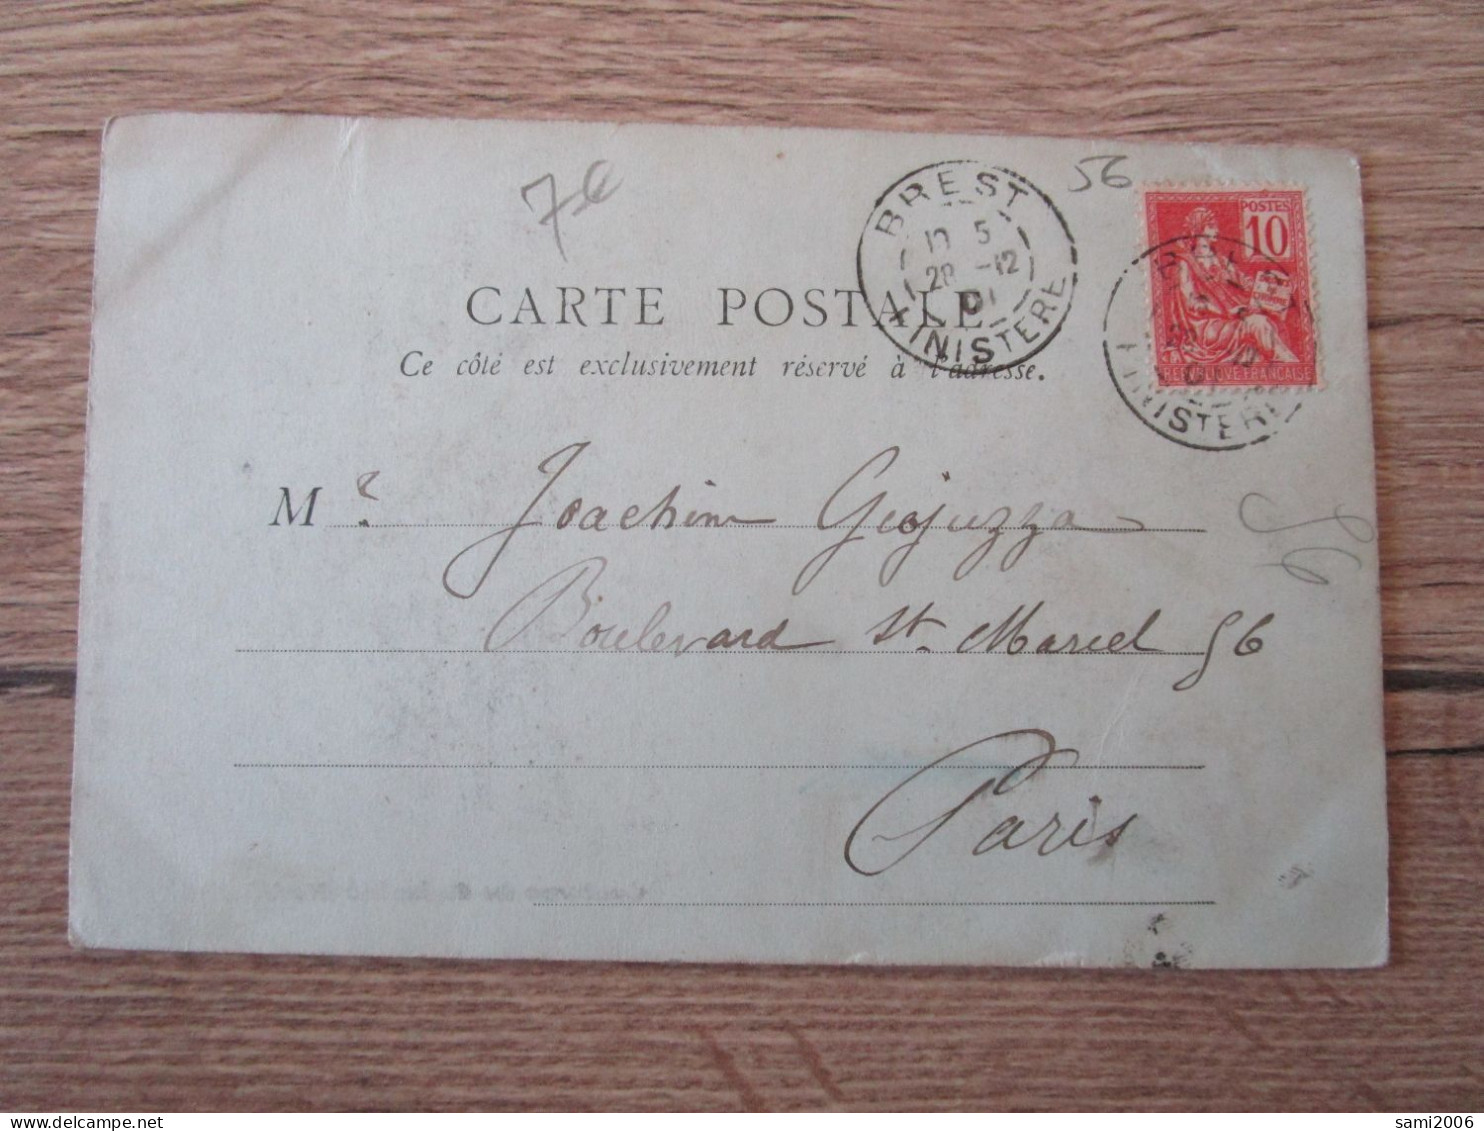 7€
56
BREST
5
28 -12
01
FINISTERE
POSTES
10
REPUBLIQUE FRANÇAISE
FINISTERE
CARTE POSTALE
Ce côté est exclusivement réservé à l'adresse.
Mr Joachim Giojuzza
56
Boulevard St. Marcel 56
Paris
sami2006